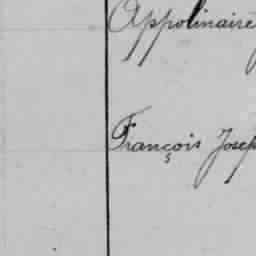 Appolinaire
François Josep